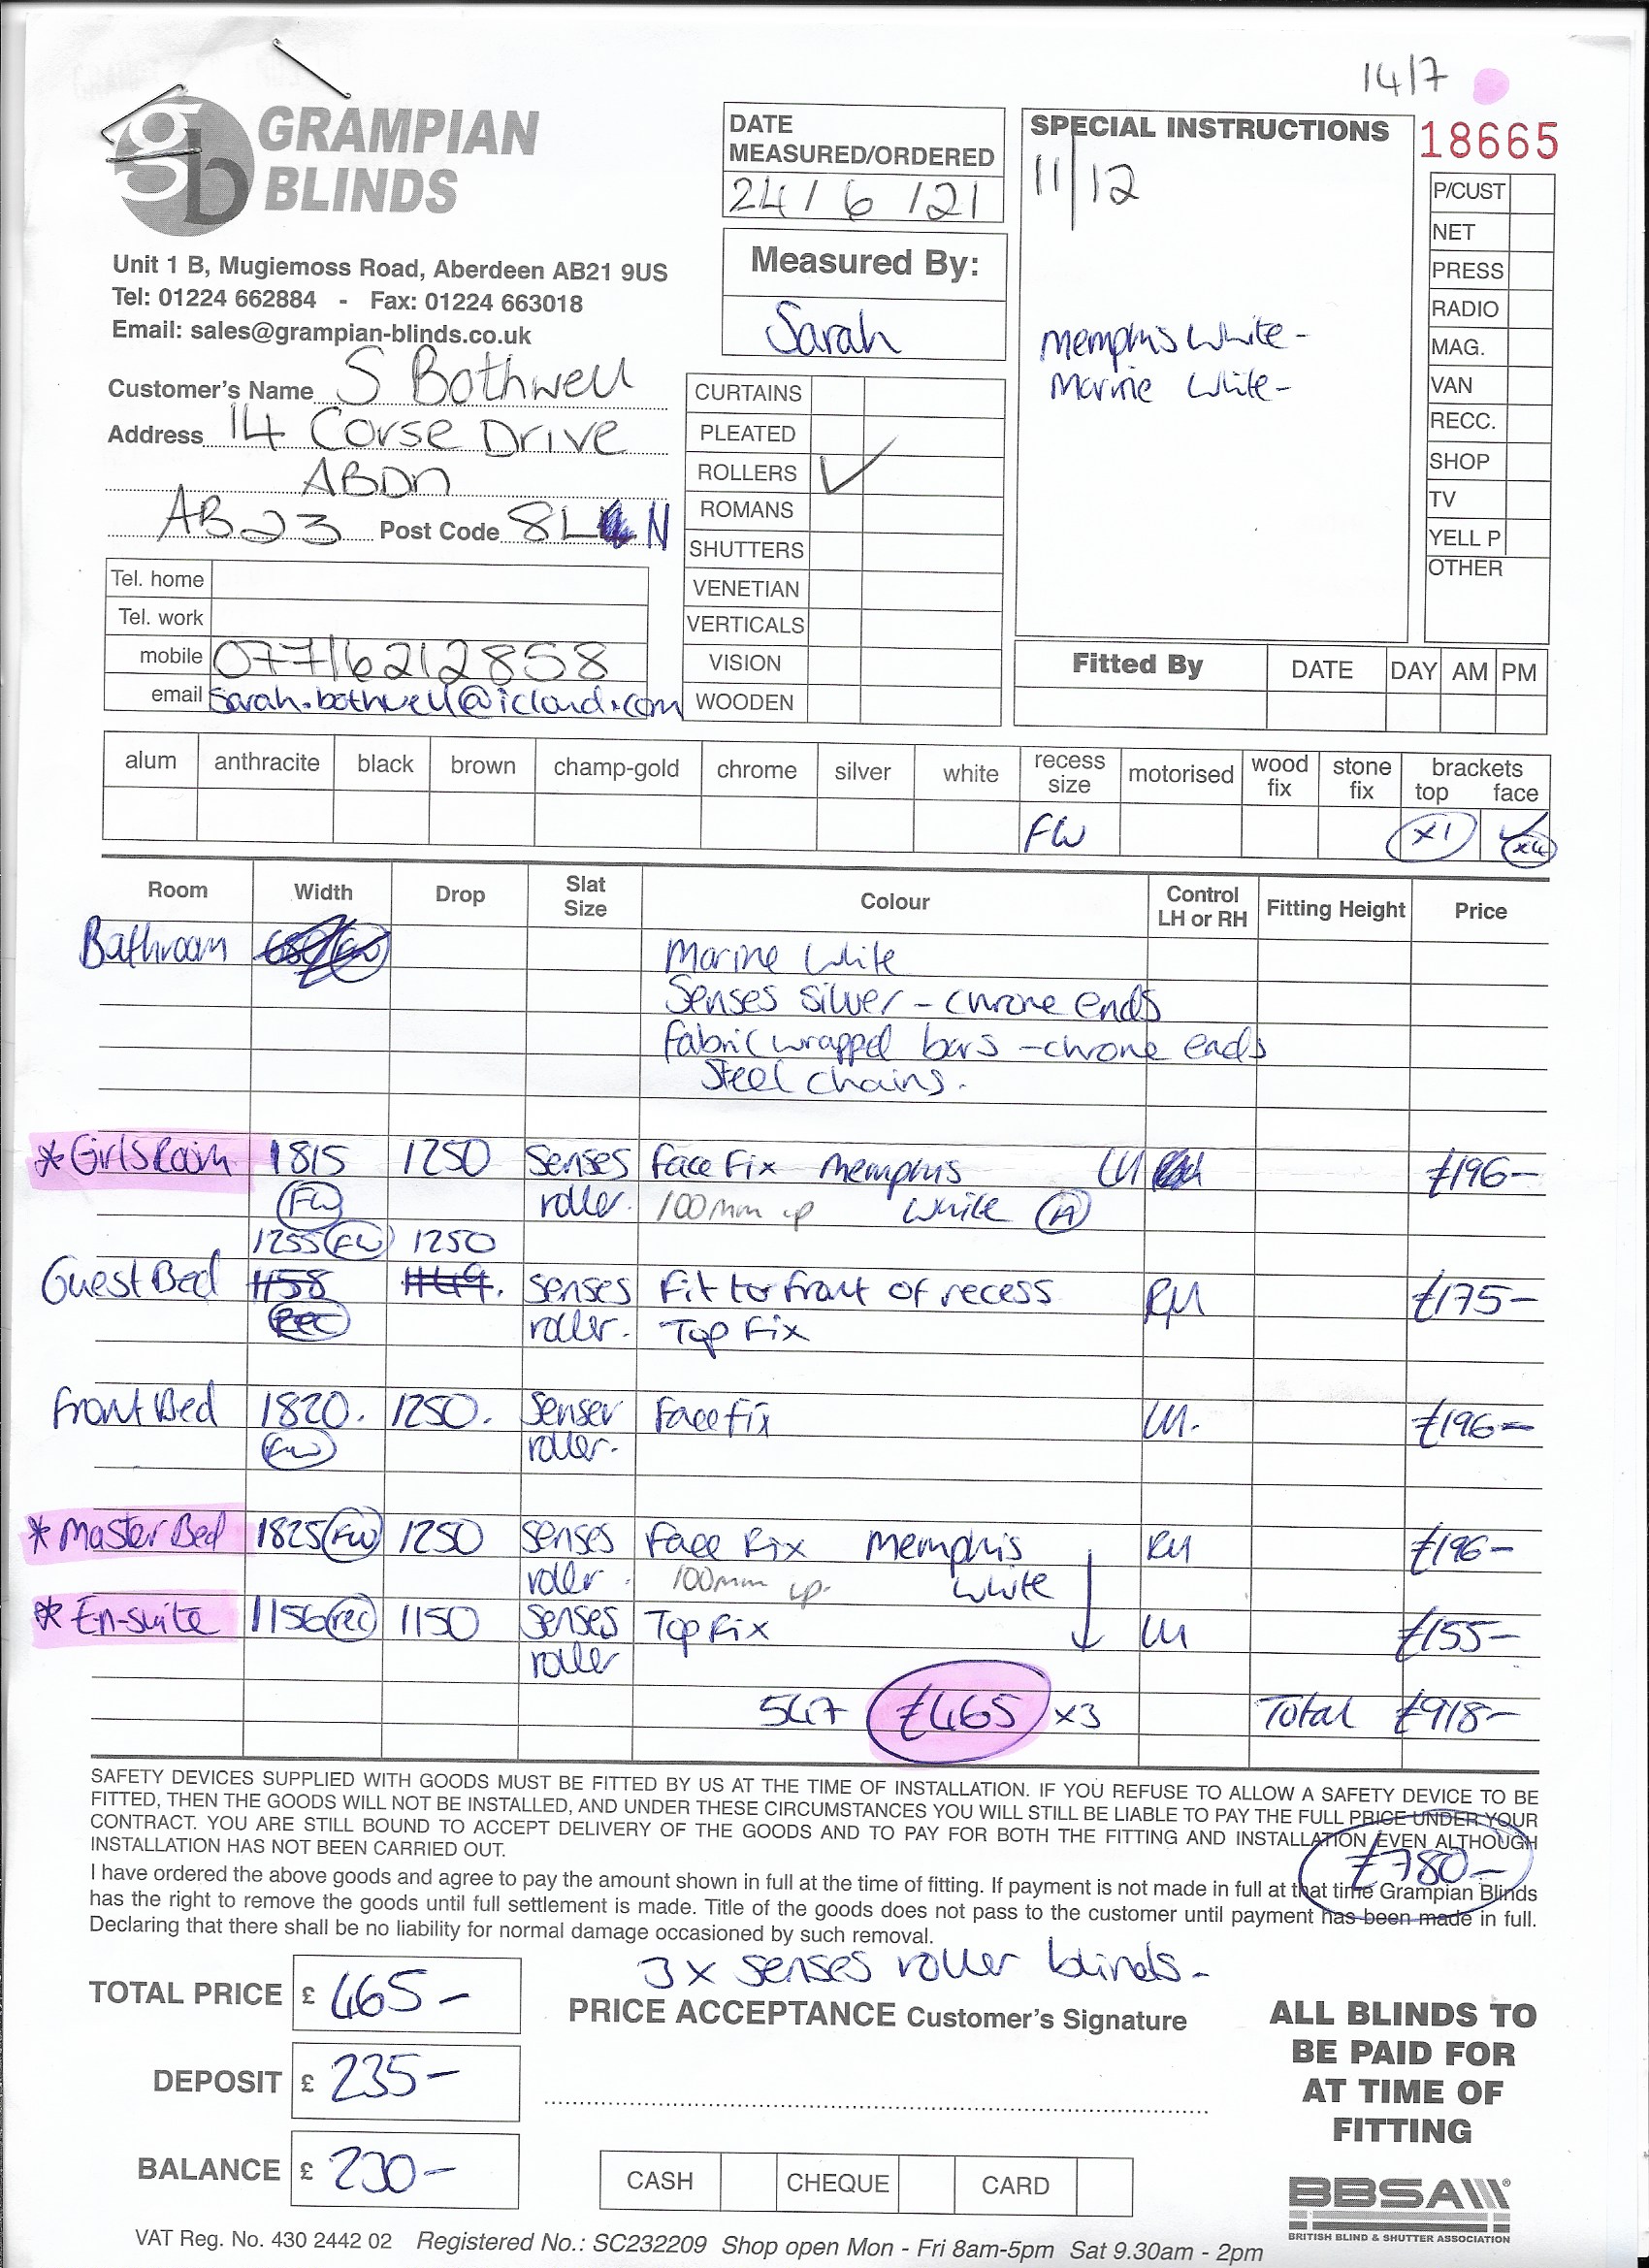 14/7
GRAMPIAN
BLINDS
Unit 1 B, Mugiemoss Road, Aberdeen AB21 9US
Tel: 01224 662884 - Fax: 01224 663018
Email: sales@grampian-blinds.co.uk
Customer's Name S Bothwell
Address 14 Corse Drive
ABDN
AB23 Post Code 8L N
Tel. home
Tel. work
mobile 07716212858
email sarah.bothwell@icloud.com
DATE
MEASURED/ORDERED
24/6/21
Measured By:
Sarah
CURTAINS
PLEATED
ROLLERS ✓
ROMANS
SHUTTERS
VENETIAN
VERTICALS
VISION
WOODEN
SPECIAL INSTRUCTIONS
11/12
Memphis White -
Marine White -
18665
P/CUST
NET
PRESS
RADIO
MAG.
VAN
RECC.
SHOP
TV
YELL P
OTHER
Fitted By DATE DAY AM PM
alum anthracite black brown champ-gold chrome silver white recess size motorised wood fix stone fix brackets top face
FW x1 ✓ x4
Room Width Drop Slat Size Colour Control LH or RH Fitting Height Price
Bathroom Marine White
Senses silver - chrome ends
Fabric wrapped bars - chrome ends
Steel chains.
* Girls Room 1815 1250 Senses Face Fix Memphis LH £196-
FW roller. 100mm up White A
1255 FW 1250
Guest Bed 1158 1149. senses Fit to front of recess RH £175-
Rec roller. Top Fix
Front Bed 1820. 1250. Senses Face fix LH. £196-
FW roller.
* Master Bed 1825 FW 1250 senses Face Fix Memphis RH £196-
roller. 100mm up. White
* En-suite 1156 rec 1150 senses Top Fix LH £155-
roller
547 £465 x3 Total £918-
SAFETY DEVICES SUPPLIED WITH GOODS MUST BE FITTED BY US AT THE TIME OF INSTALLATION. IF YOU REFUSE TO ALLOW A SAFETY DEVICE TO BE
FITTED, THEN THE GOODS WILL NOT BE INSTALLED, AND UNDER THESE CIRCUMSTANCES YOU WILL STILL BE LIABLE TO PAY THE FULL PRICE UNDER YOUR
CONTRACT. YOU ARE STILL BOUND TO ACCEPT DELIVERY OF THE GOODS AND TO PAY FOR BOTH THE FITTING AND INSTALLATION EVEN ALTHOUGH
INSTALLATION HAS NOT BEEN CARRIED OUT.
£780-
I have ordered the above goods and agree to pay the amount shown in full at the time of fitting. If payment is not made in full at that time Grampian Blinds
has the right to remove the goods until full settlement is made. Title of the goods does not pass to the customer until payment has been made in full.
Declaring that there shall be no liability for normal damage occasioned by such removal.
3 x senses roller blinds -
TOTAL PRICE £ 465-
DEPOSIT £ 235-
BALANCE £ 230-
PRICE ACCEPTANCE Customer's Signature
CASH CHEQUE CARD
ALL BLINDS TO
BE PAID FOR
AT TIME OF
FITTING
BBSA
BRITISH BLIND & SHUTTER ASSOCIATION
VAT Reg. No. 430 2442 02 Registered No.: SC232209 Shop open Mon - Fri 8am-5pm Sat 9.30am - 2pm